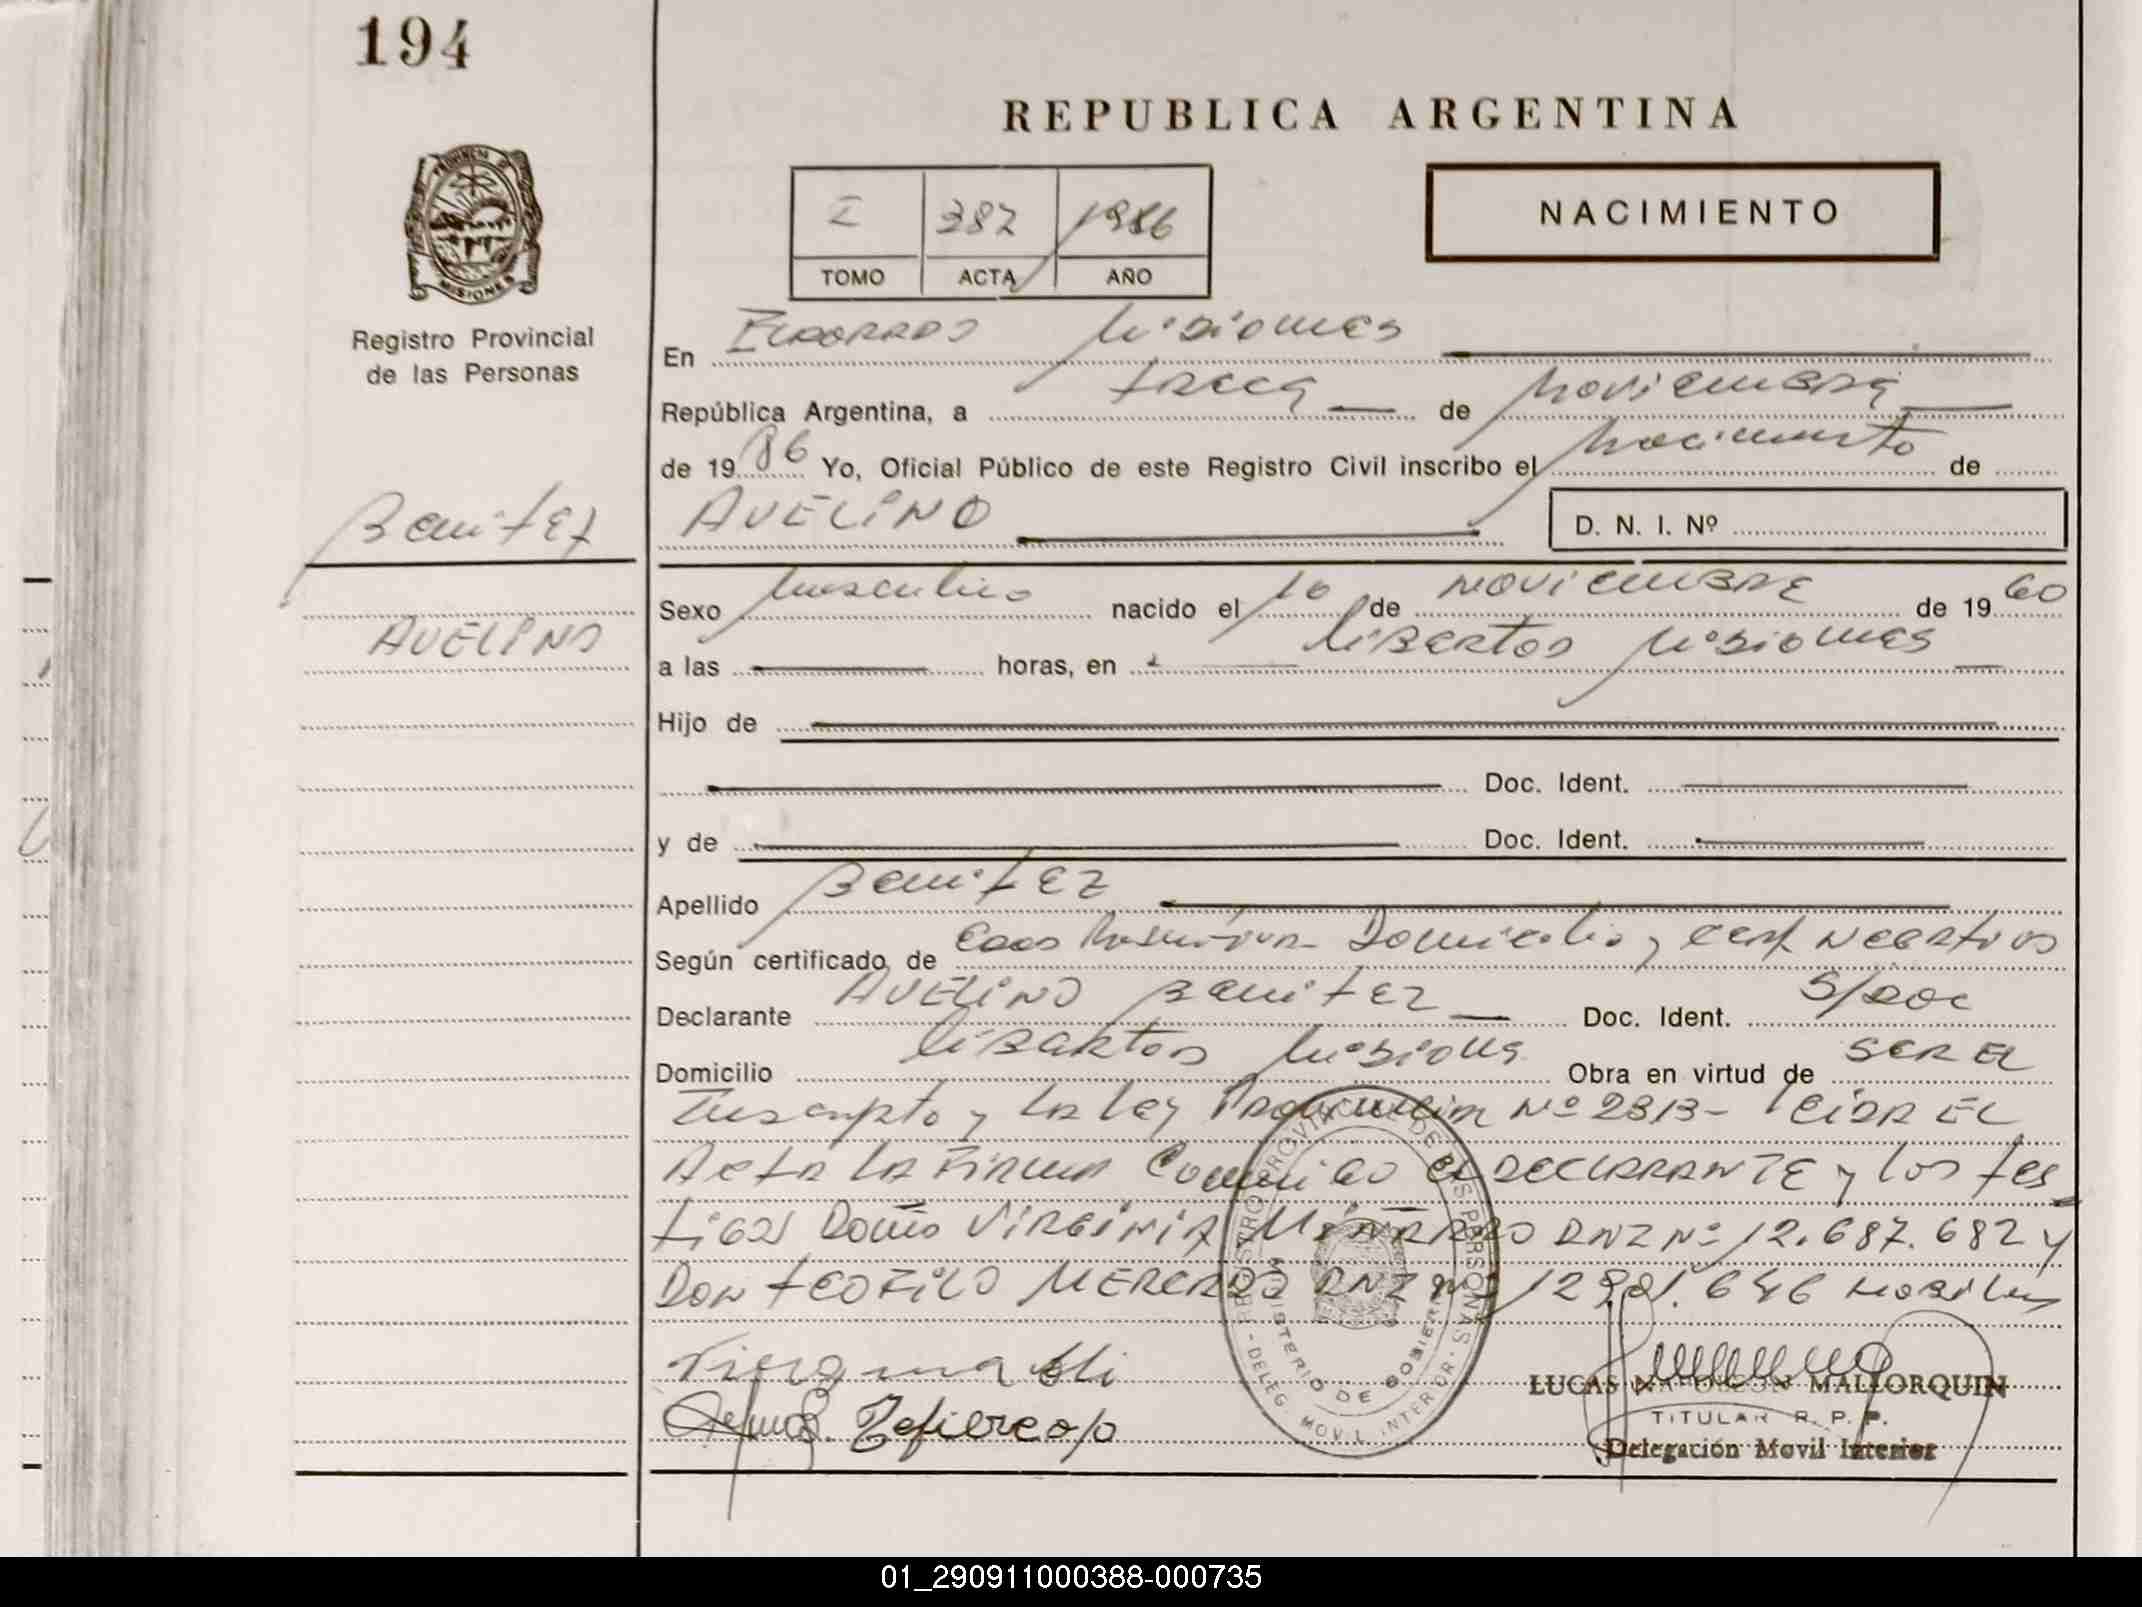 194
REPUBLICA ARGENTINA
I 382 1986
TOMO ACTA AÑO
NACIMIENTO
PROVINCIA DE MISIONES
Registro Provincial
de las Personas
En ELDORADO Misiones
República Argentina, a trece de Noviembre
de 1986 Yo, Oficial Público de este Registro Civil inscribo el Nacimiento de
Benitez
AVELINO
AVELINO
D. N. I. Nº
Sexo Masculino nacido el 10 de NOVIEMBRE de 1960
a las horas, en Libertad Misiones
Hijo de
Doc. Ident.
y de Doc. Ident.
Apellido BENITEZ
Según certificado de Domicilio y cert NEGATIVO
Declarante AVELINO BENITEZ Doc. Ident. S/DOC
Domicilio LIBERTAD Misiones Obra en virtud de SER EL
Inscripto y LA Ley Provincial Nº 2313- LEIDA EL
Acta LA FIRMAN Conmigo el DECLARANTE y los tes
tigos Doña VIRGINIA MIÑARRO DNI Nº 12.687.682 y
DON TEOFILO MERCADO DNI Nº 646
REGISTRO PROVINCIAL DE LAS PERSONAS
MINISTERIO DE GOBIERNO
DELEG. MOVIL INTERIOR
LUCAS NAPOLEON MALLORQUIN
TITULAR R. P. P.
Delegación Movil Interior
01_290911000388-000735